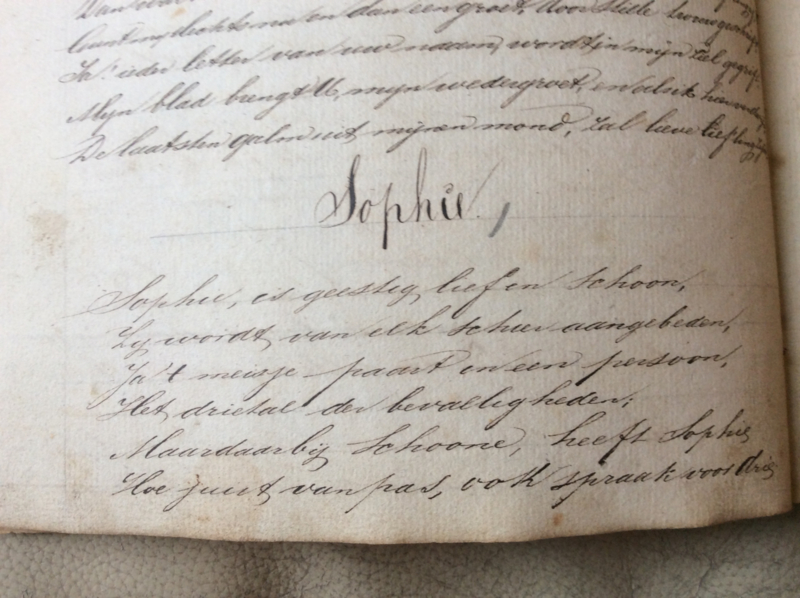 Dan
dan een groet, door stille
Ja! ieder letter van uw naam, wordt in mijn ziel
Mijn blad brengt U, mijn wedergroet, en
De laatsten galm uit mijnen mond, zal lieve
Sophie,
Sophie, is geestig lief en schoon,
Zij wordt van elk schier aangebeden,
Ja 't meisje paart in een persoon,
Het drietal der bevalligheden;
Maar daarbij schoone, heeft Sophie
Hoe juist van pas, ook spraak voor drie